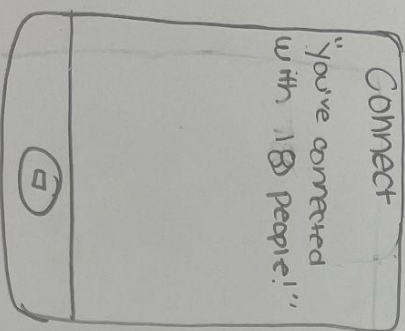 Connect
"You've connected
with 18 people!"